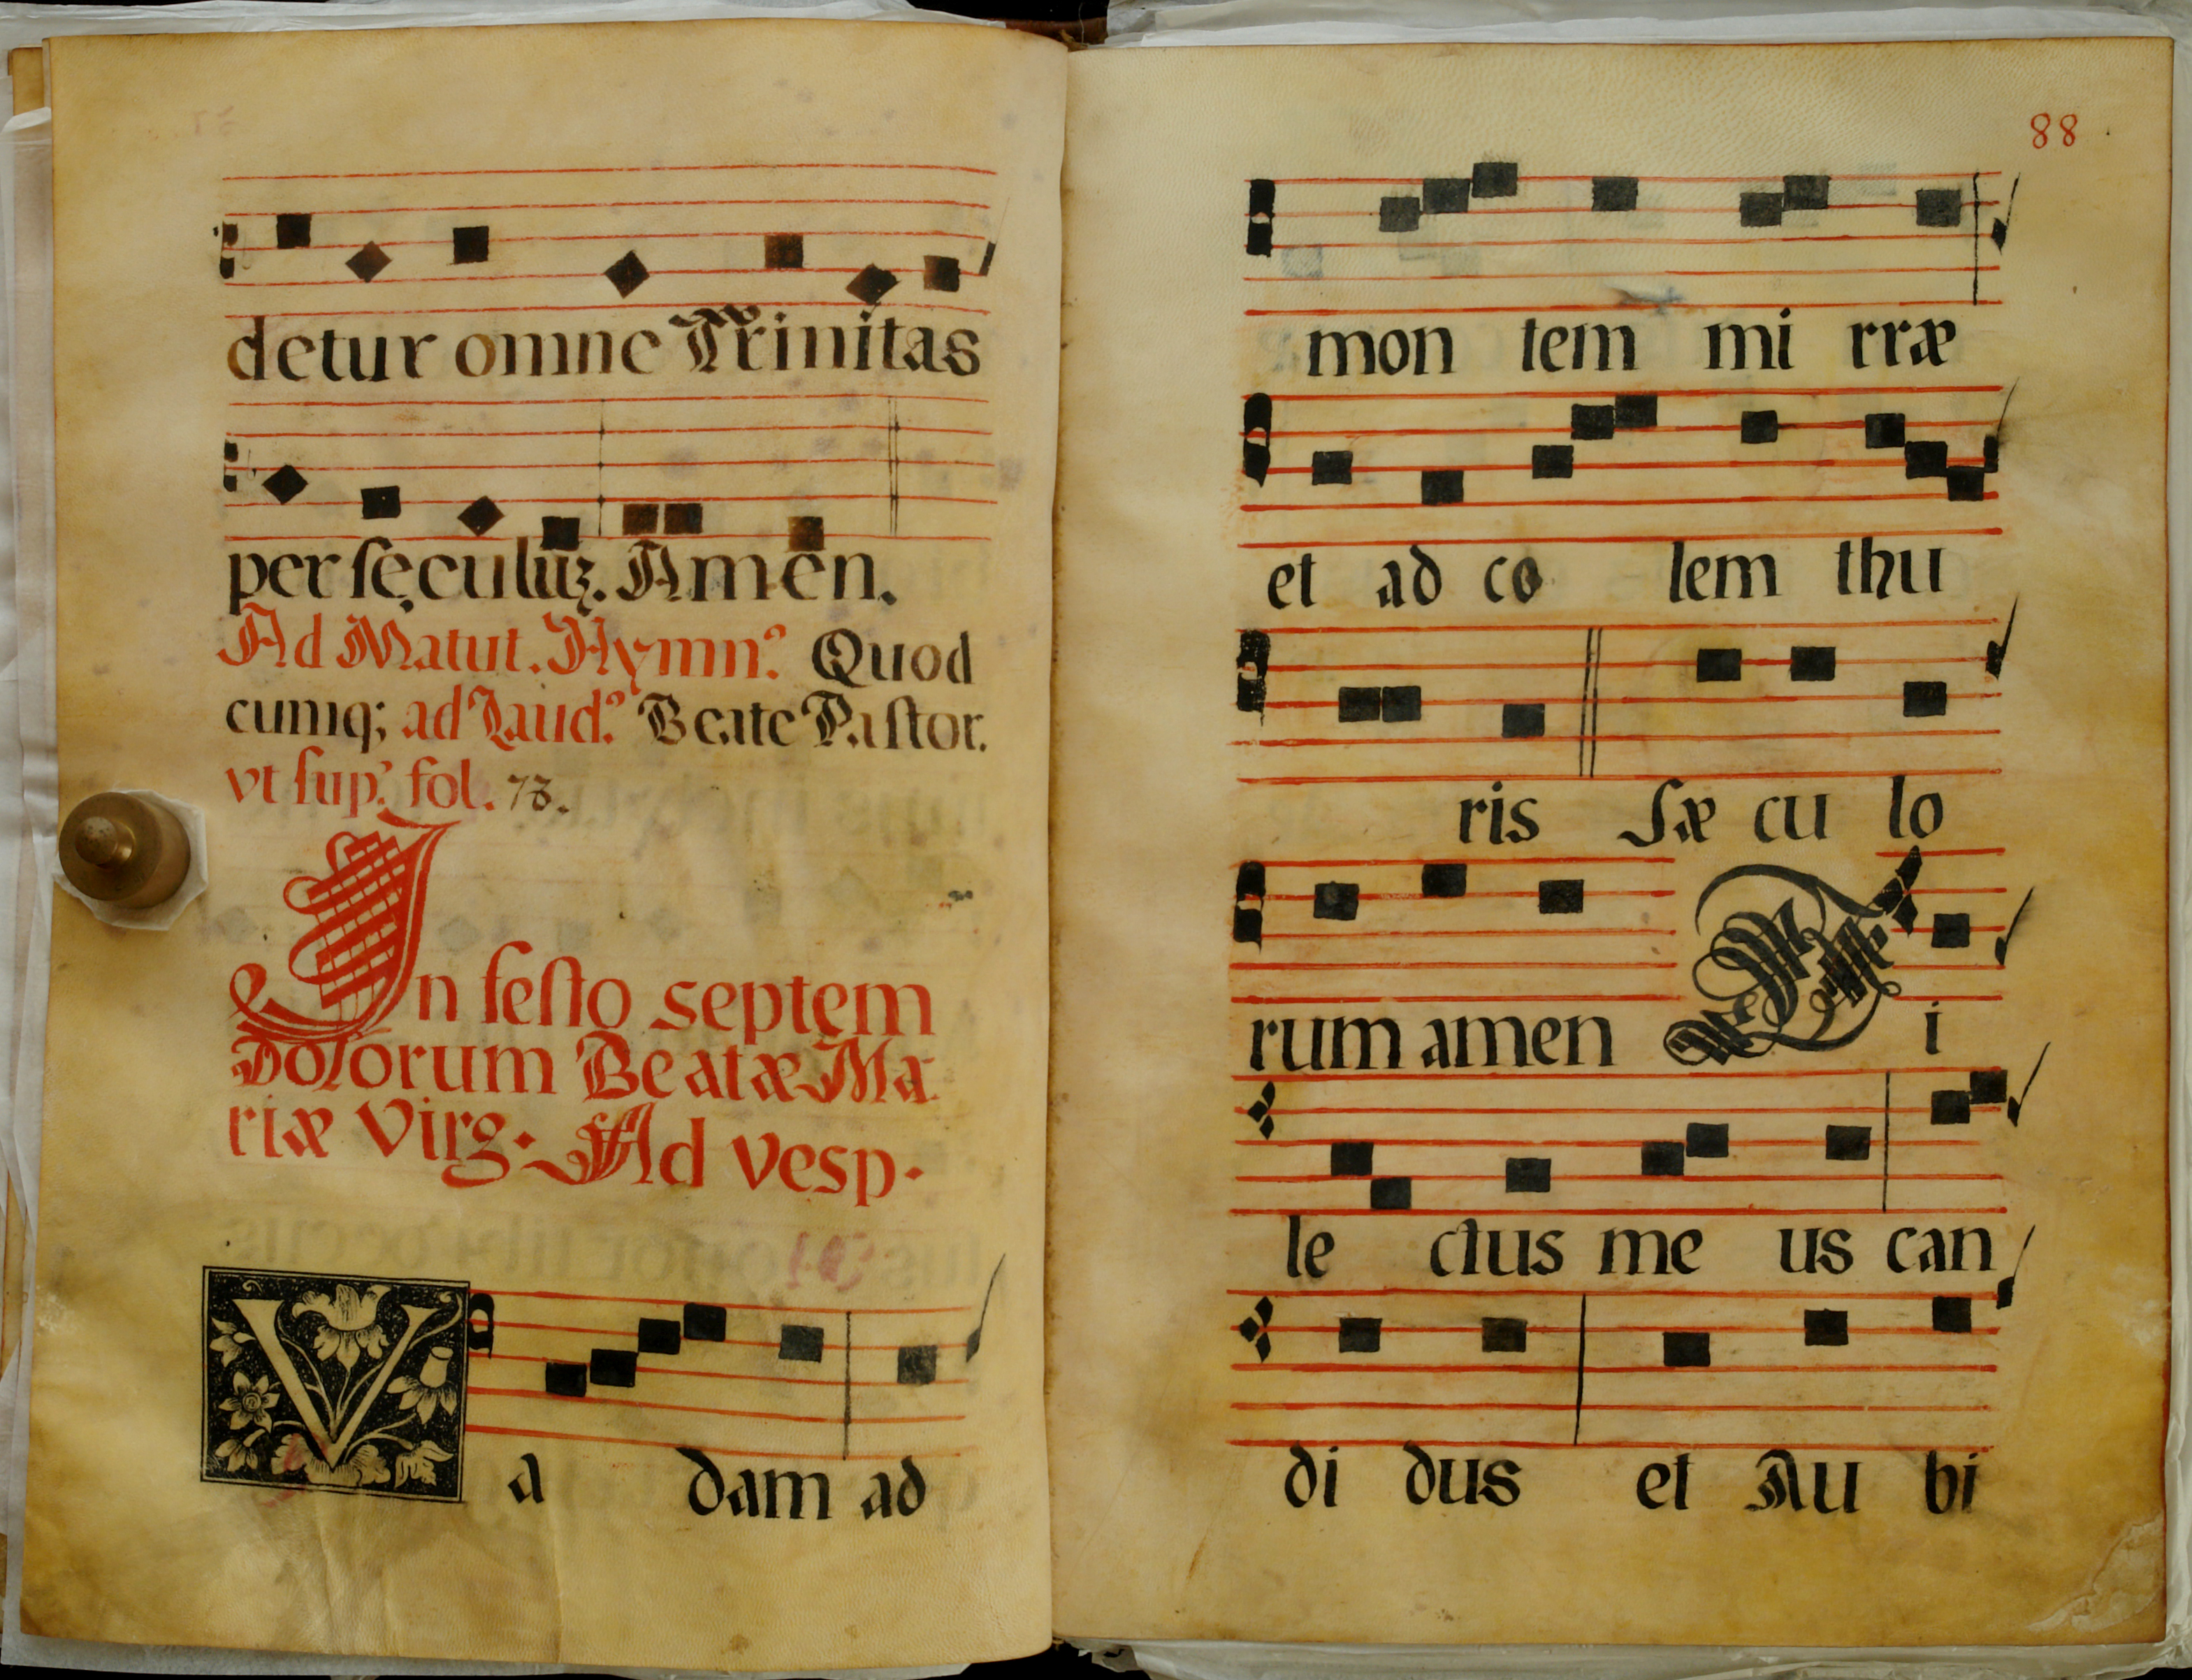 detur omne Trinitas
per seculuz. Amen.
Ad Matut. Hymn⁹. Quod
cumq; ad Laud⁹. Beate Pastor.
vt sup.' fol. 73.
In festo septem
Dolorum Beatæ Ma
riæ Virg. Ad vesp.
V a dam ad
88
mon tem mi rræ
et ad co lem thu
ris Sæ cu lo
rum amen D i
le ctus me us can
di dus et Au bi